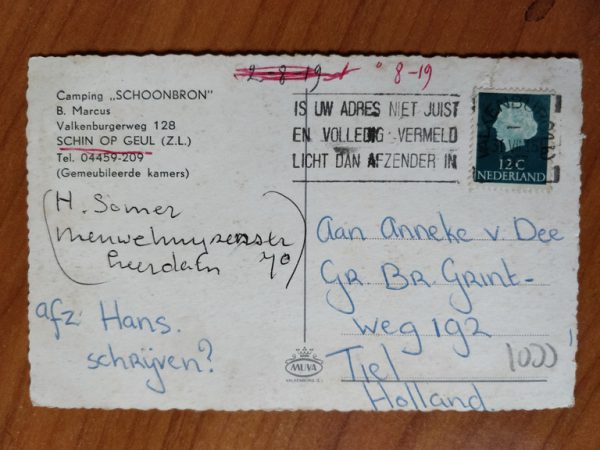 2-8-19
8-19
Camping „SCHOONBRON"
B. Marcus
Valkenburgerweg 128
SCHIN OP GEUL (Z.L.)
Tel. 04459-209
(Gemeubileerde kamers)
IS UW ADRES NIET JUIST
EN VOLLEDIG VERMELD
LICHT DAN AFZENDER IN
12 C
NEDERLAND
H. Somer
70
afz Hans.
schrijven?
Aan Anneke v Dee
Gr. Br. Grint-
weg 192
Tiel
Holland.
1000
MUVA
VALKENBURG (L.)